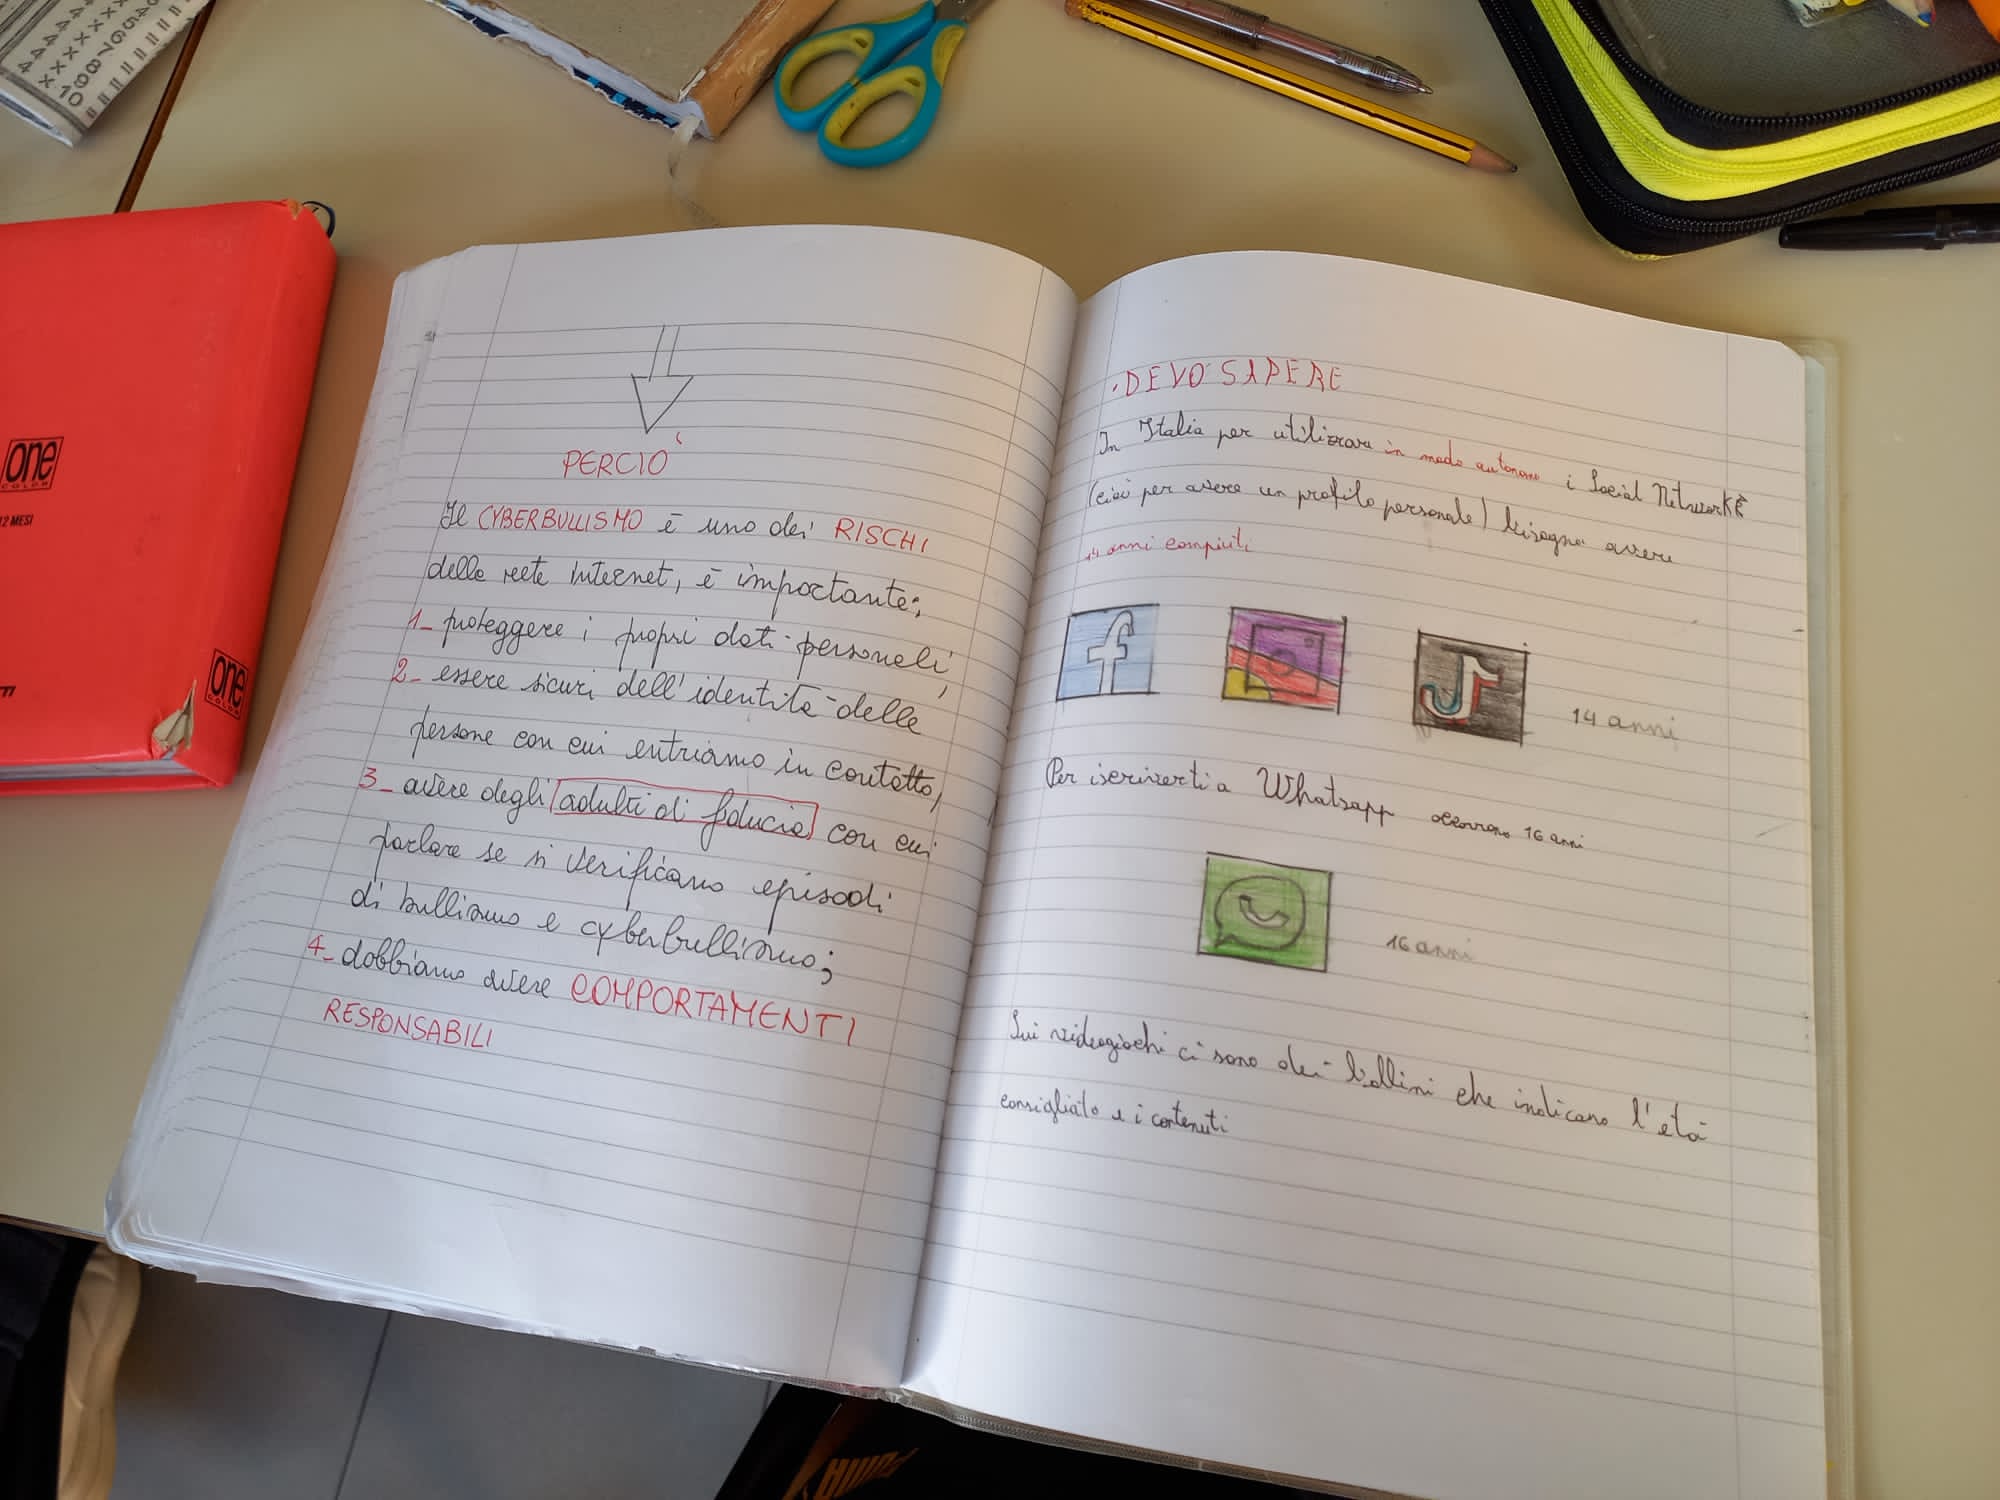 4 x 5 =
4 x 6 =
4 x 7 =
4 x 8 =
4 x 9 =
4 x 10 =
one
COLOR
12 MESI
one
COLOR
PERCIÒ
Il CYBERBULLISMO è uno dei RISCHI
della rete internet, è importante:
1- proteggere i propri dati personali,
2- essere sicuri dell'identità delle
persone con cui entriamo in contatto,
3- avere degli adulti di fiducia con cui
parlare se si verificano episodi
di bullismo e cyberbullismo;
4- dobbiamo avere COMPORTAMENTI
RESPONSABILI
• DEVO SAPERE
In Italia per utilizzare in modo autonomo i Social Network
(cioè per avere un profilo personale) bisogna avere
14 anni compiuti
14 anni
Per iscriverti a Whatsapp occorrono 16 anni
16 anni
Sui videogiochi ci sono dei bollini che indicano l'età
consigliato e i contenuti
PUMA